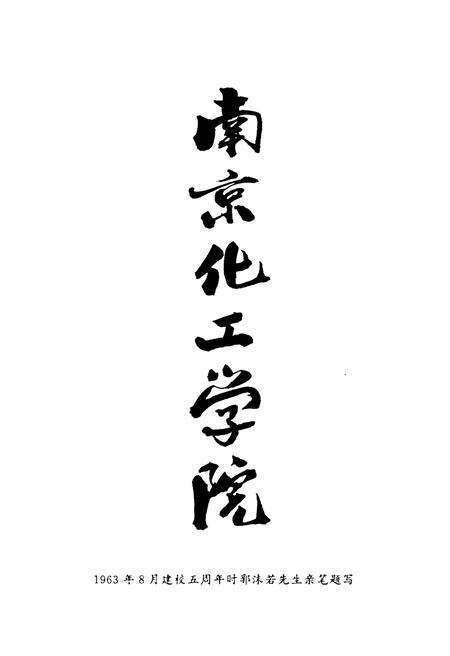 南京化工学院
1963年8月建校五周年时郭沫若先生亲笔题写